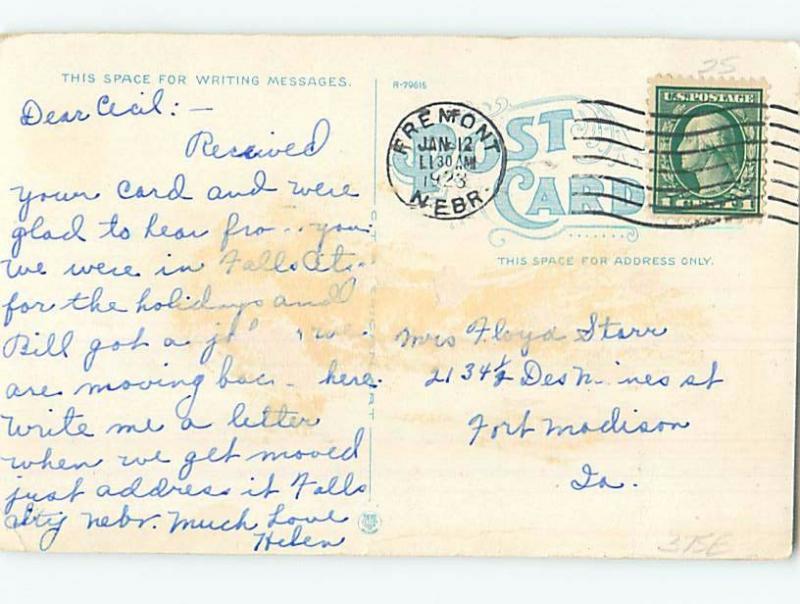 THIS SPACE FOR WRITING MESSAGES.
Dear Cecil: —
Received
your card and were
glad to hear fro you
we were in Falls Cit
for the holidays and
Bill got a j we
are moving bac here
write me a letter
when we get moved
just address it Falls
City Nebr. Much Love
Helen
R-79615
POST CARD
FREMONT
JAN 12
11 30 AM
1923
NEBR.
U.S. POSTAGE
THIS SPACE FOR ADDRESS ONLY.
Mrs Floyd Starr
2134½ Des M ines st
Fort Madison
Ia.
25
375E